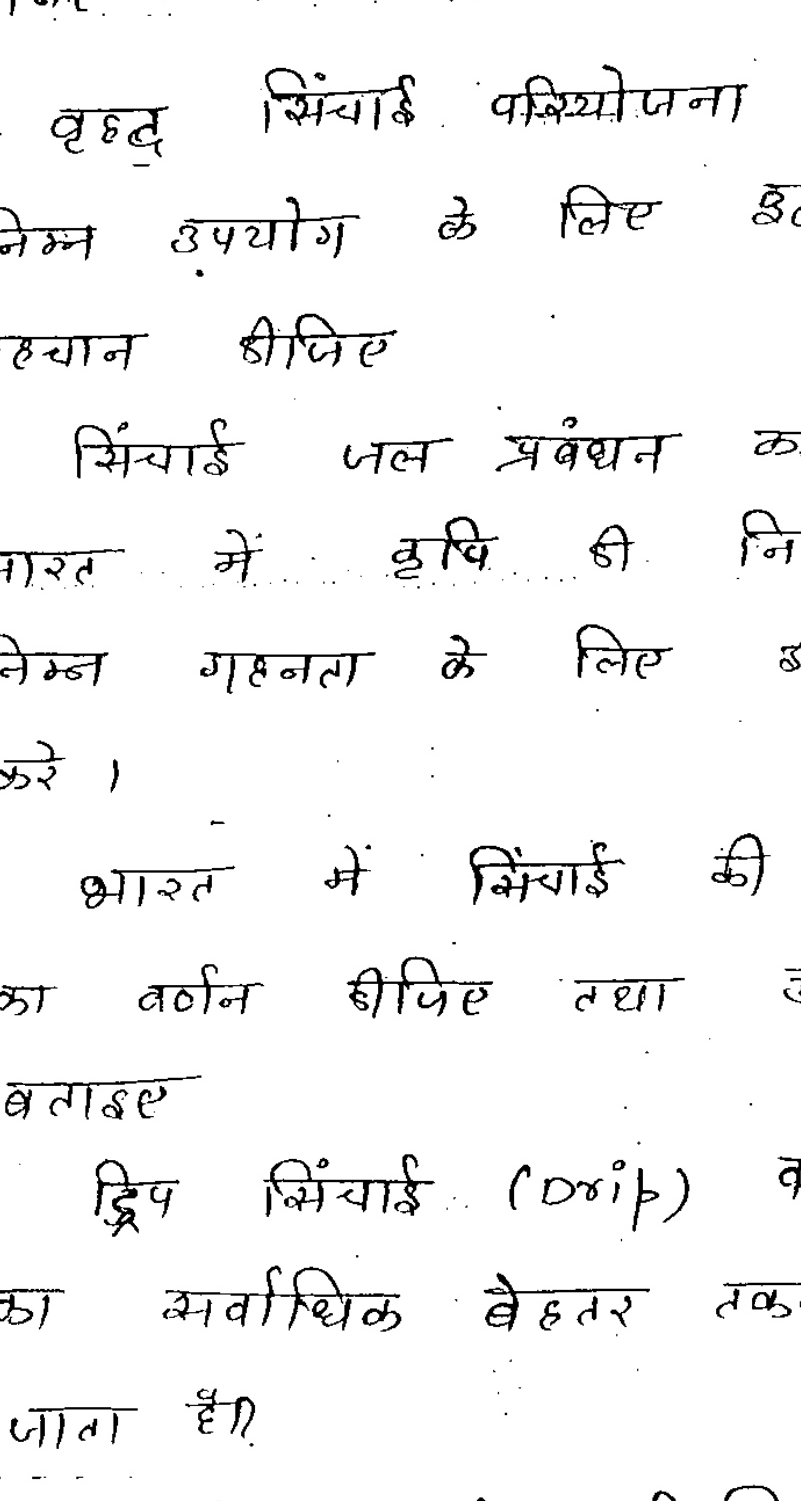 वृहद् सिंचाई परियोजना
निम्न उपयोग के लिए
कीजिए
सिंचाई जल प्रबंधन
भारत में कृषि की
निम्न गहनता के लिए
करे ।
भारत में सिंचाई की
का वर्णन कीजिए तथा
बताइए
ड्रिप सिंचाई (Drip)
का सर्वाधिक बेहतर
जाता है?